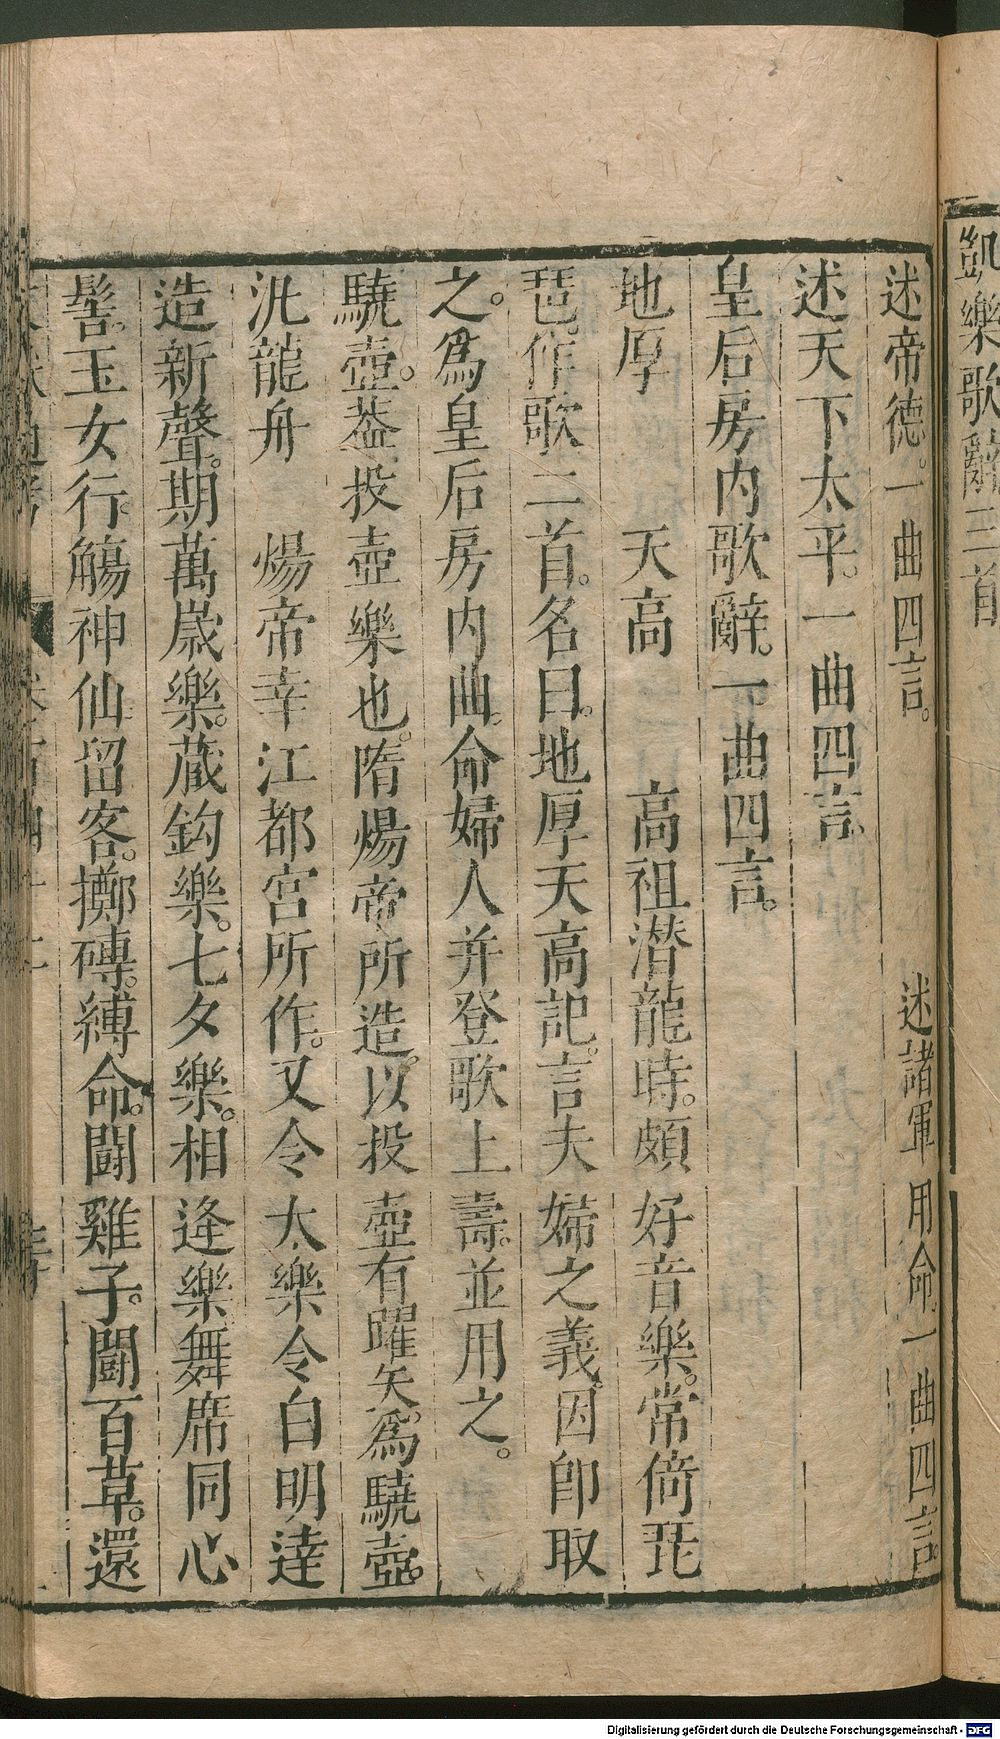 凱樂歌辭三首
述帝德。一曲四言。 述諸軍用命。一曲四言。
述天下太平。一曲四言。
皇后房內歌辭。一曲四言。
地厚 天高 高祖潛龍時。頗好音樂。常倚琵
琶。作歌二首。名曰。地厚天高記。言夫婦之義。因即取
之。爲皇后房內曲。命婦人并登歌上壽。並用之。
驍壺。葢投壺樂也。隋煬帝所造。以投壺有躍矢。爲驍壺。
汎龍舟 煬帝幸江都宮所作。又令太樂令白明達
造新聲。期萬歲樂。藏鈎樂。七夕樂。相逄樂舞席同心
髻。玉女行。觴神仙留客。擲磚。縛命。鬭雞子。鬭百草。還
Digitalisierung gefördert durch die Deutsche Forschungsgemeinschaft - DFG